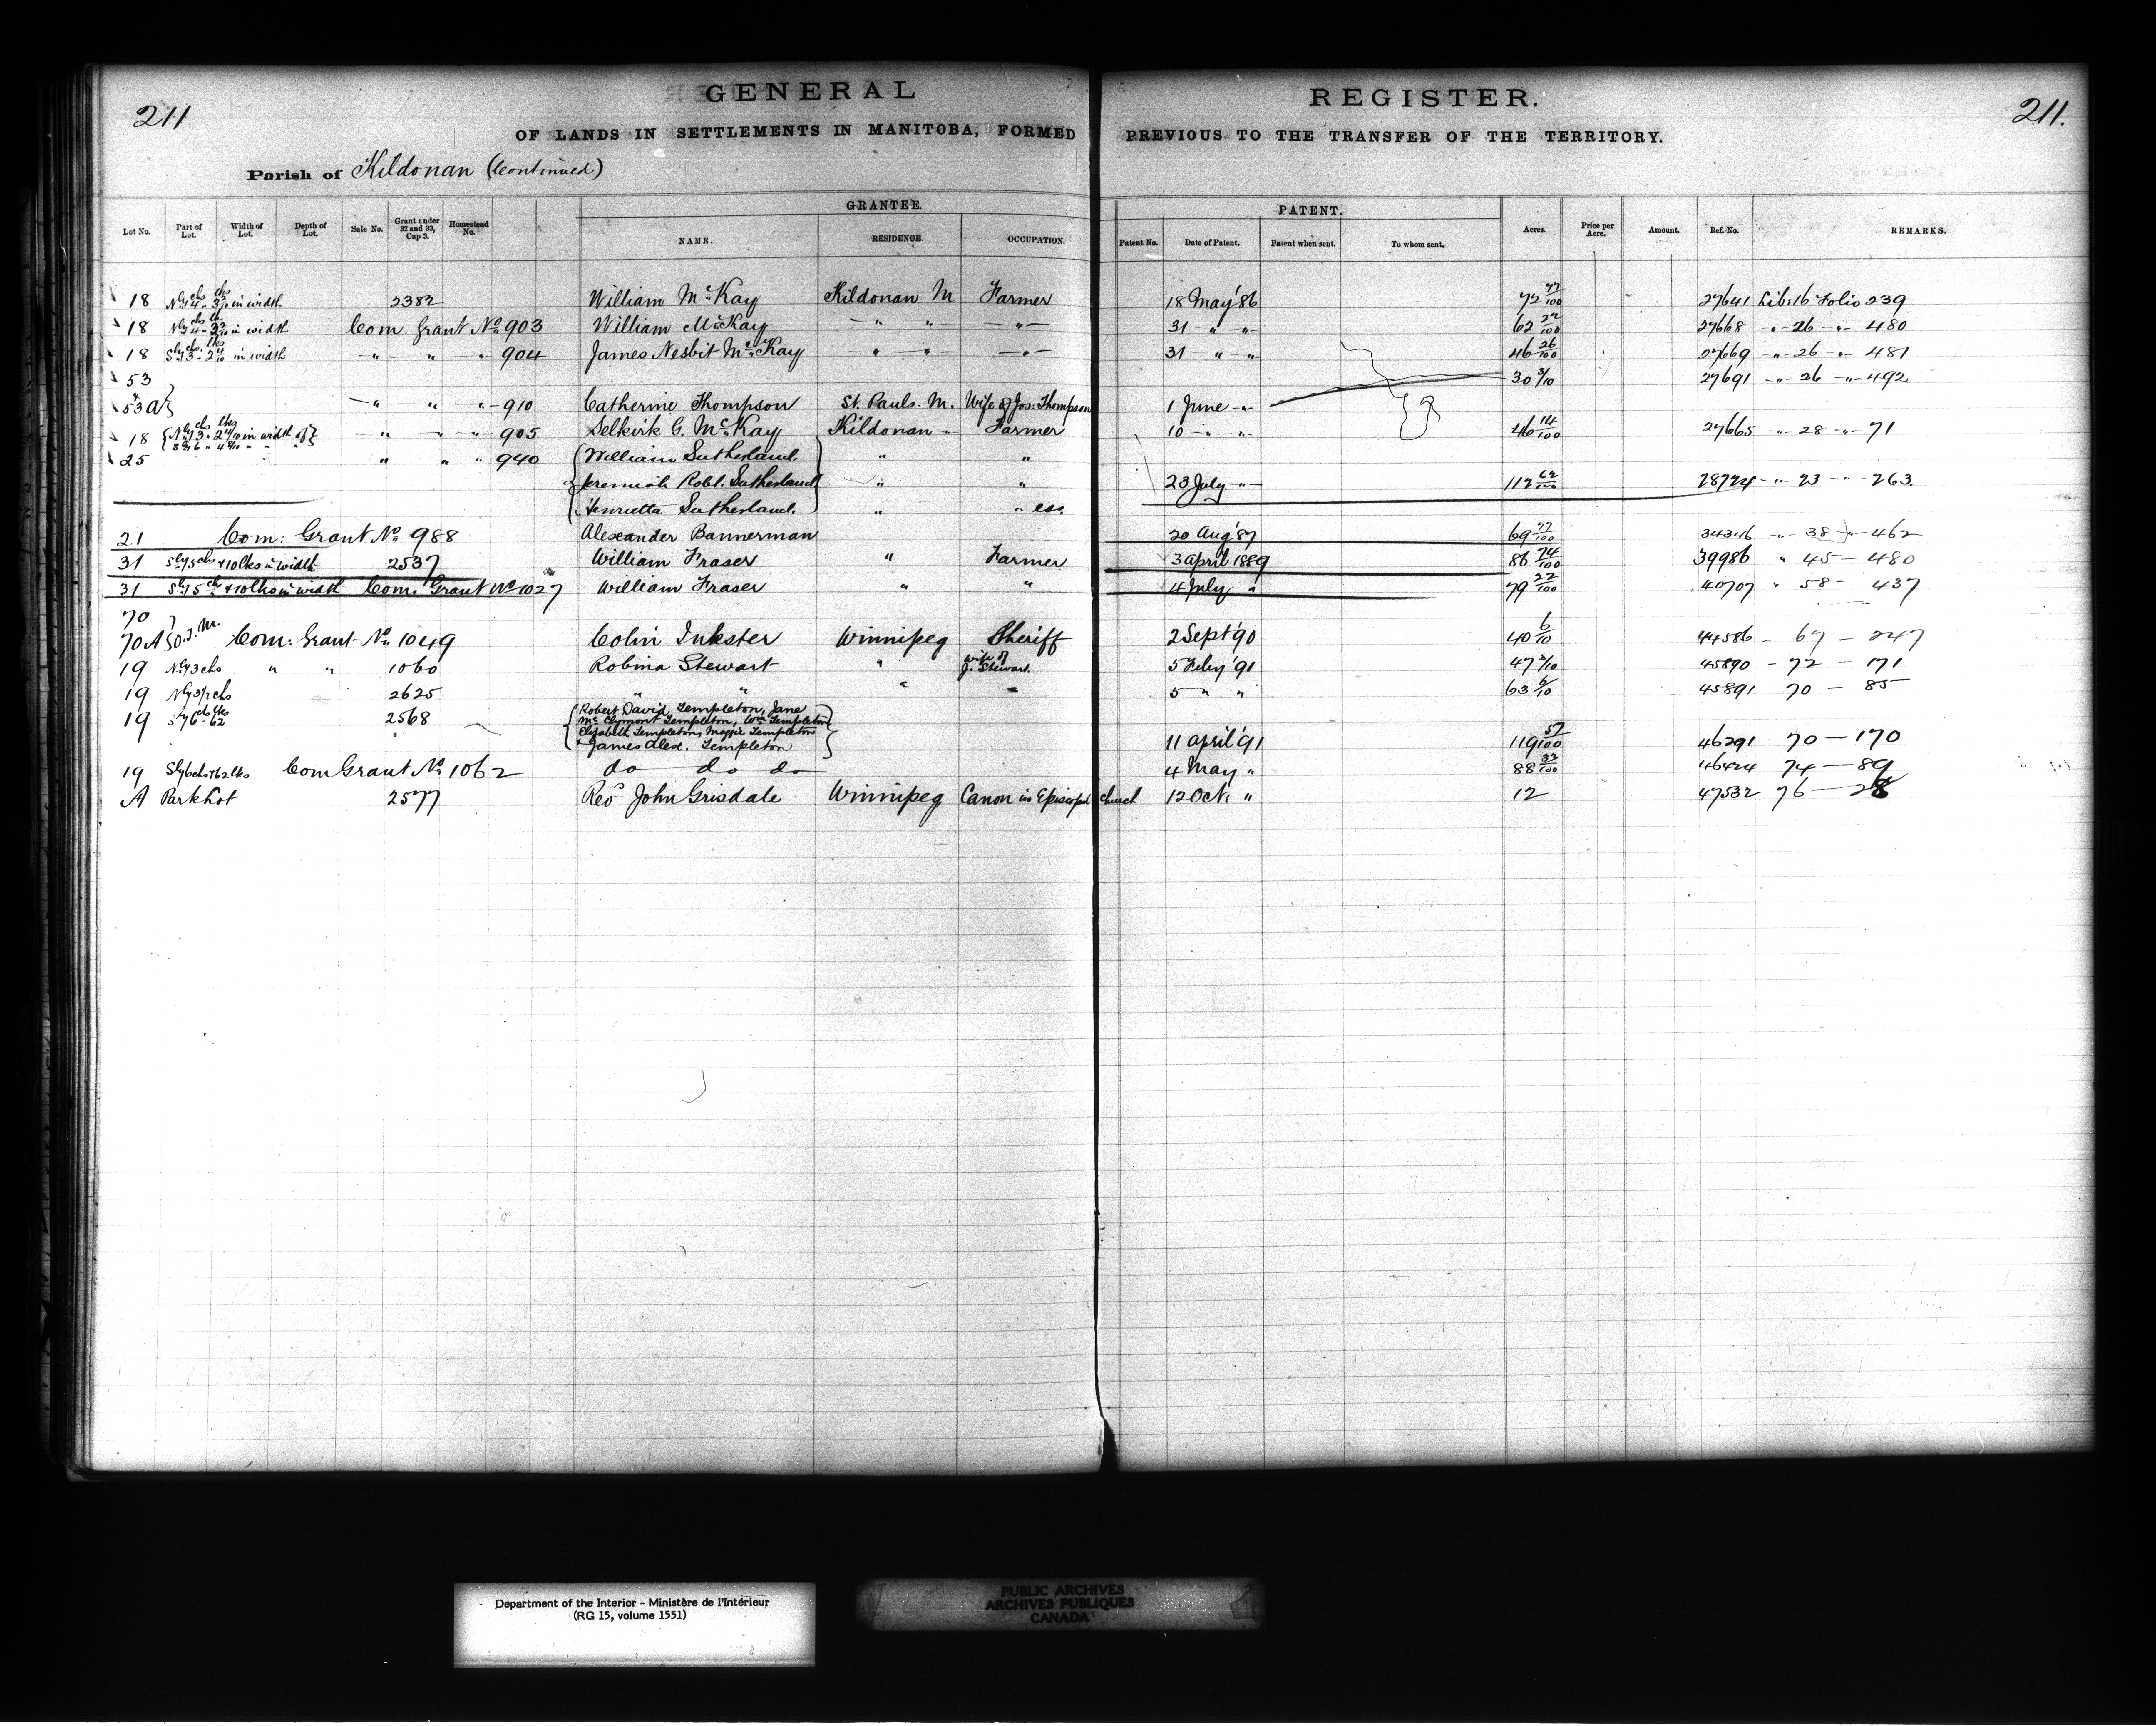 211
GENERAL REGISTER.
211.
OF LANDS IN SETTLEMENTS IN MANITOBA, FORMED PREVIOUS TO THE TRANSFER OF THE TERRITORY.
Parish of Kildonan (Continued)
GRANTEE. PATENT.
Lot No. Part of Lot. Width of Lot. Depth of Lot. Sale No. Grant under 32 and 33, Cap 3. Homestead No. NAME. RESIDENCE. OCCUPATION. Patent No. Date of Patent. Patent when sent. To whom sent. Acres. Price per Acre. Amount. Ref. No. REMARKS.
18 in width 2382 William McKay Kildonan M Farmer 18 May '86 72 77/100 27641 Lib: 16 Folio 239
18 in width Com. Grant No 903 William McKay " " " 31 " " 62 22/100 27668 " 26 " 480
18 in width " " " 904 James Nesbit McKay " " " 31 " " 46 26/100 27669 " 26 " 481
53 30 3/10 27691 " 26 " 492
53 a " " " 910 Catherine Thompson St. Pauls. M. Wife of Jos: Thompson 1 June "
18 in width of " " " 905 Selkirk G. McKay Kildonan " Farmer 10 " " 46 14/100 27665 " 28 " 71
25 " " " 940 William Sutherland. " "
Jeremiah Robt. Sutherland " " 23 July " 112 28724 " 23 " 263
Henrietta Sutherland. " "
21 Com: Grant No 988 Alexander Bannerman 20 Aug '87 69 77/100 34346 " 38 " 462
31 Sly 5 chs + 10 lks in width 2537 William Fraser " Farmer 3 April 1889 86 74/100 39986 " 45 — 480
31 Sly 5 ch + 10 lks in width Com. Grant No 1027 William Fraser " " 4 July " 79 22/100 40707 " 58 - 437
70
70 A O.T.M. Com: Grant No 1049 Colin Inkster Winnipeg Sheriff 2 Sept '90 40 6/10 44586 - 67 - 247
19 Nly 3 chs " " 1060 Robina Stewart " wife of J. Stewart. 5 Feby '91 47 3/10 45890 - 72 - 171
19 2625 " " " " 5 " " 63 6/10 45891 70 - 85
19 Sly 6 chs 62 lks 2568 Robert David Templeton, Jane
McClymont Templeton, Wm Templeton
Elizabeth Templeton, Maggie Templeton
+ James Alex. Templeton 11 April '91 119 57/100 46291 70 — 170
19 Sly 6 chs + 62 lks Com Grant No 1062 do do do 4 May " 88 32/100 46424 74 — 89
A Park Lot 2577 Revd John Grisdale Winnipeg Canon in Episcopal Church 12 Oct. " 12 47532 76 — 28
Department of the Interior - Ministère de l'Intérieur
(RG 15, volume 1551)
PUBLIC ARCHIVES
ARCHIVES PUBLIQUES
CANADA